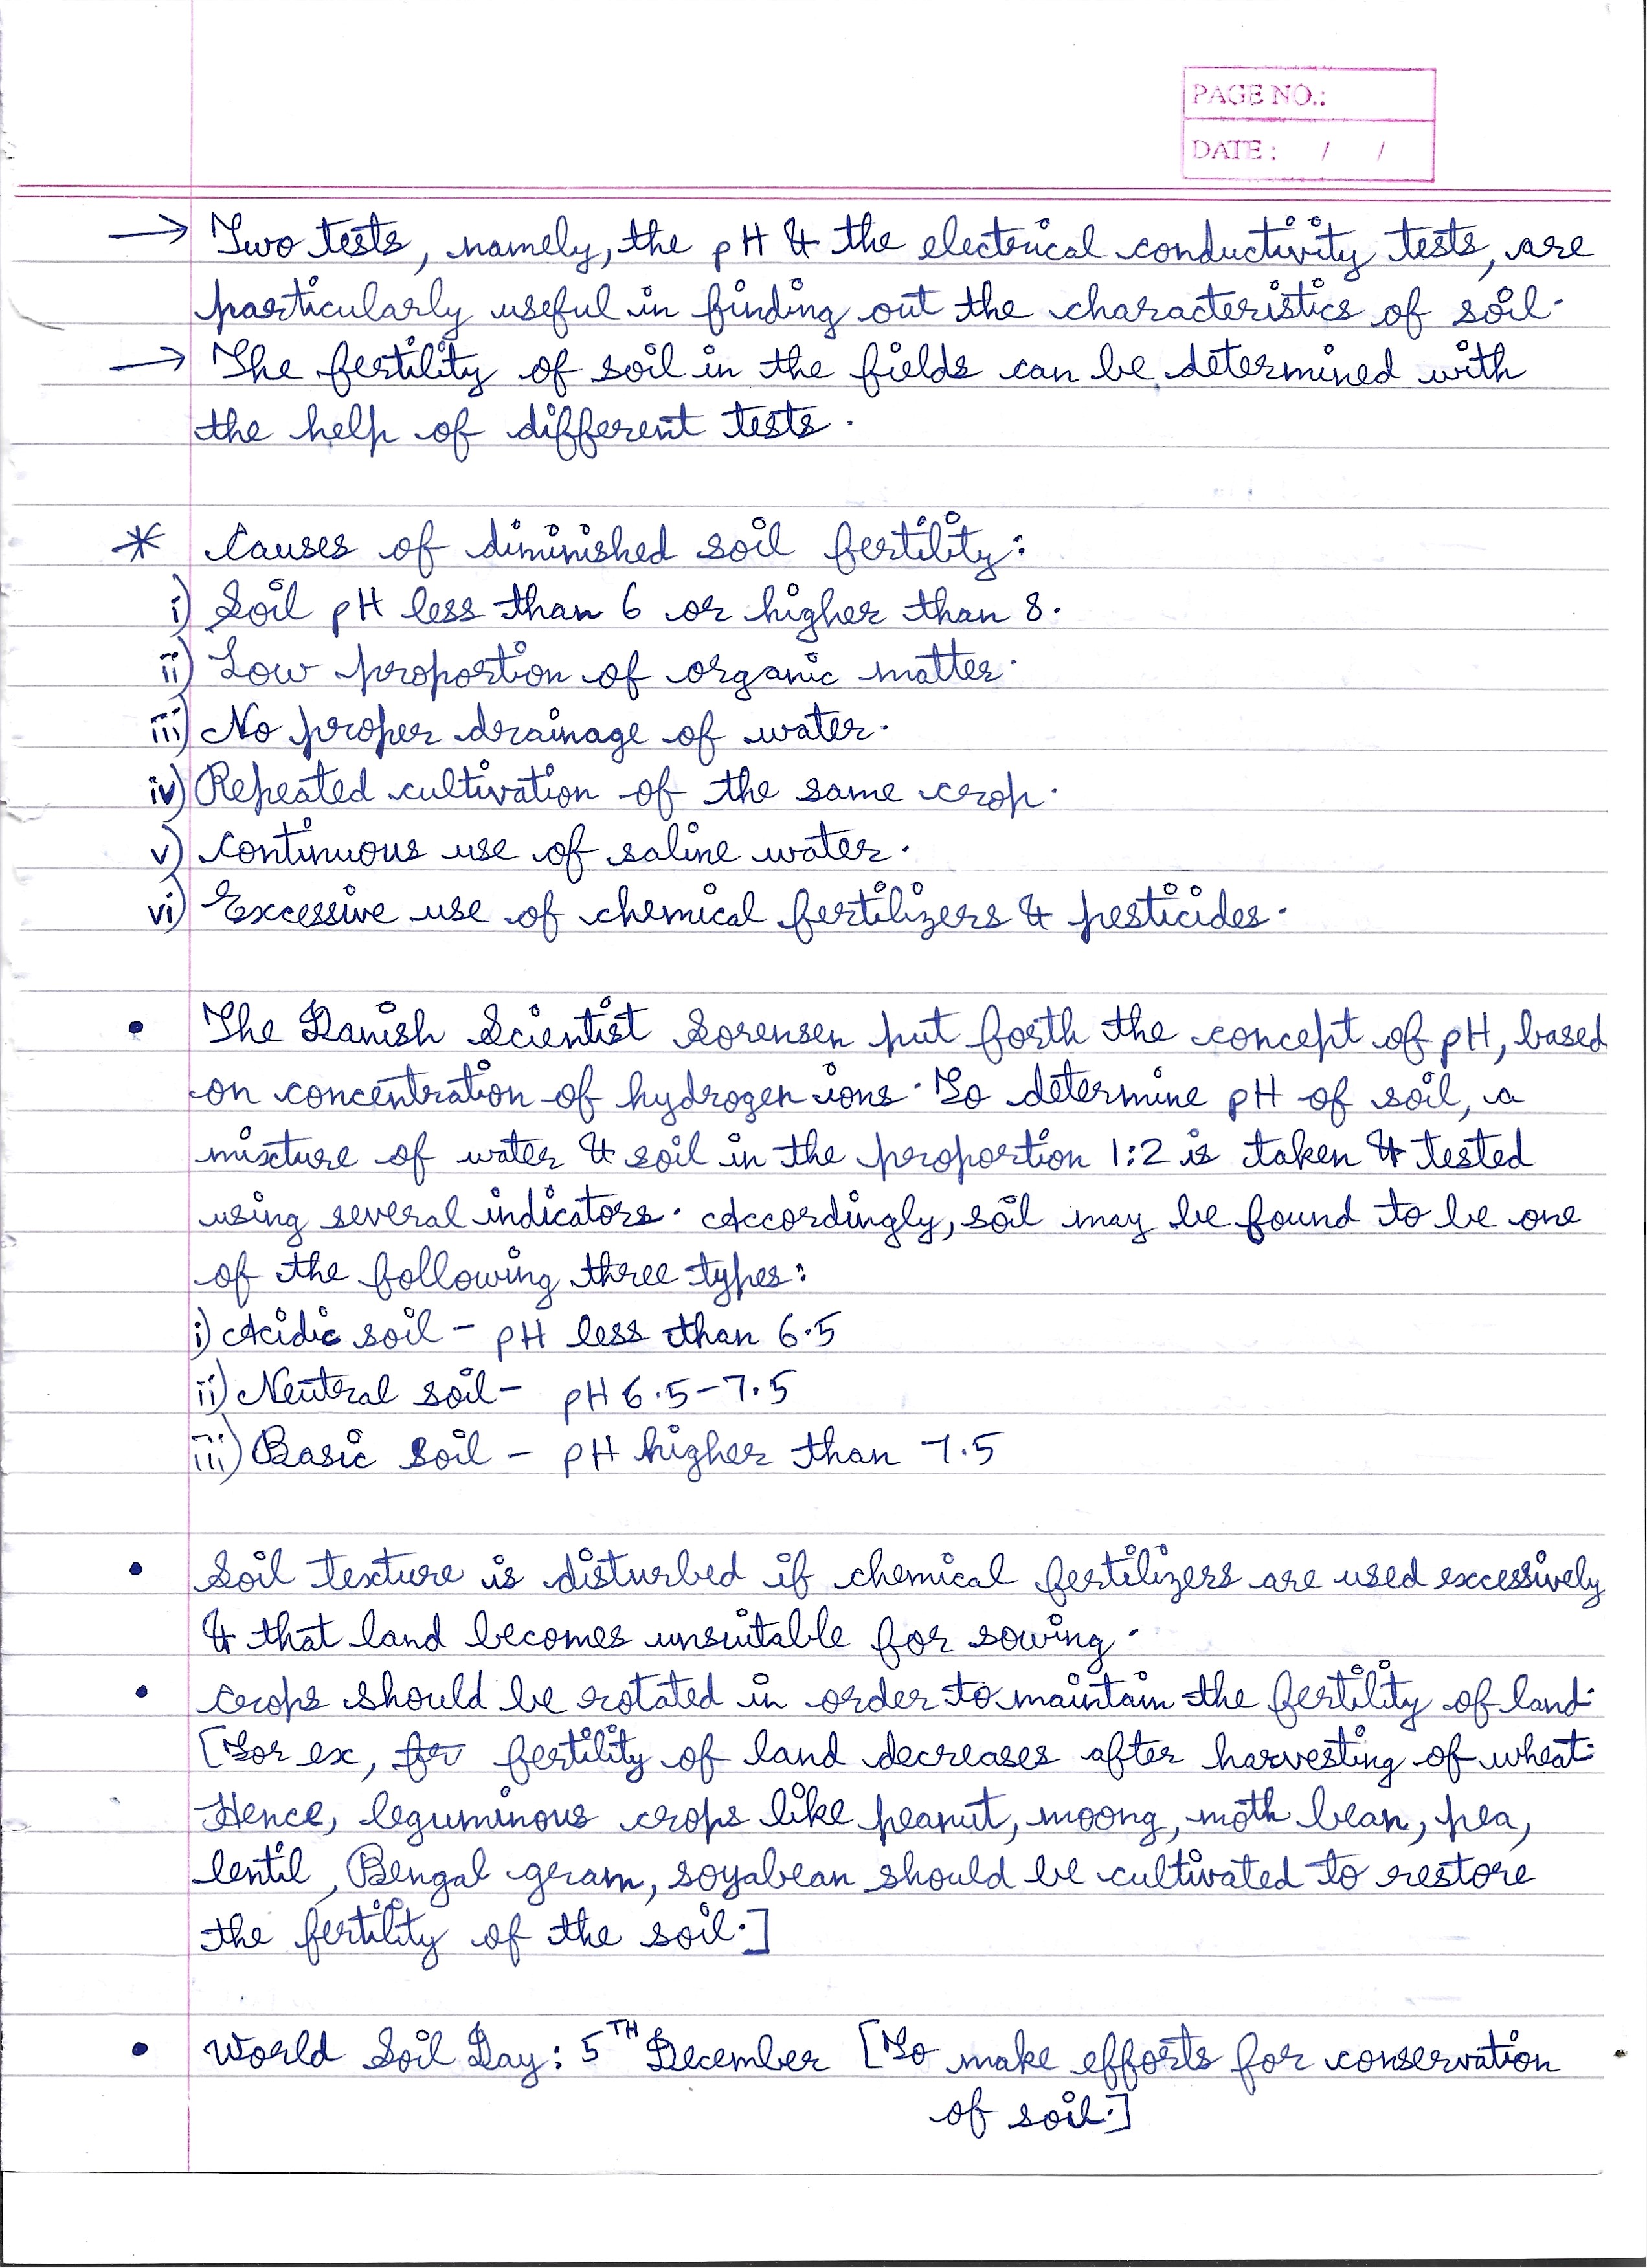 PAGE NO.:
DATE : / /
→ Two tests, namely, the pH & the electrical conductivity tests, are
particularly useful in finding out the characteristics of soil.
→ The fertility of soil in the fields can be determined with
the help of different tests.
* Causes of diminished soil fertility:
i) Soil pH less than 6 or higher than 8.
ii) Low proportion of organic matter.
iii) No proper drainage of water.
iv) Repeated cultivation of the same crop.
v) Continuous use of saline water.
vi) Excessive use of chemical fertilizers & pesticides.
• The Danish Scientist Sorensen put forth the concept of pH, based
on concentration of hydrogen ions. To determine pH of soil, a
mixture of water & soil in the proportion 1:2 is taken & tested
using several indicators. Accordingly, soil may be found to be one
of the following three types:
i) Acidic soil - pH less than 6.5
ii) Neutral soil - pH 6.5-7.5
iii) Basic soil - pH higher than 7.5
• Soil texture is disturbed if chemical fertilizers are used excessively
& that land becomes unsuitable for sowing.
• Crops should be rotated in order to maintain the fertility of land.
[For ex, for fertility of land decreases after harvesting of wheat.
Hence, leguminous crops like peanut, moong, moth bean, pea,
lentil, Bengal gram, soyabean should be cultivated to restore
the fertility of the soil.]
• World Soil Day: 5TH December [To make efforts for conservation
of soil.]